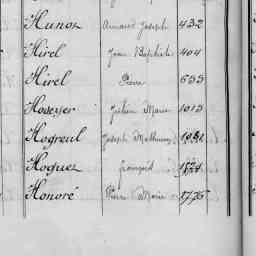 Hunon Armand Joseph 432
Hirel Jean Baptiste 404
Hirel Pierre 633
Julien Marie 1013
Hogreul Joseph Mathurin
Hoguet françois
Honoré Pierre Marie 1776